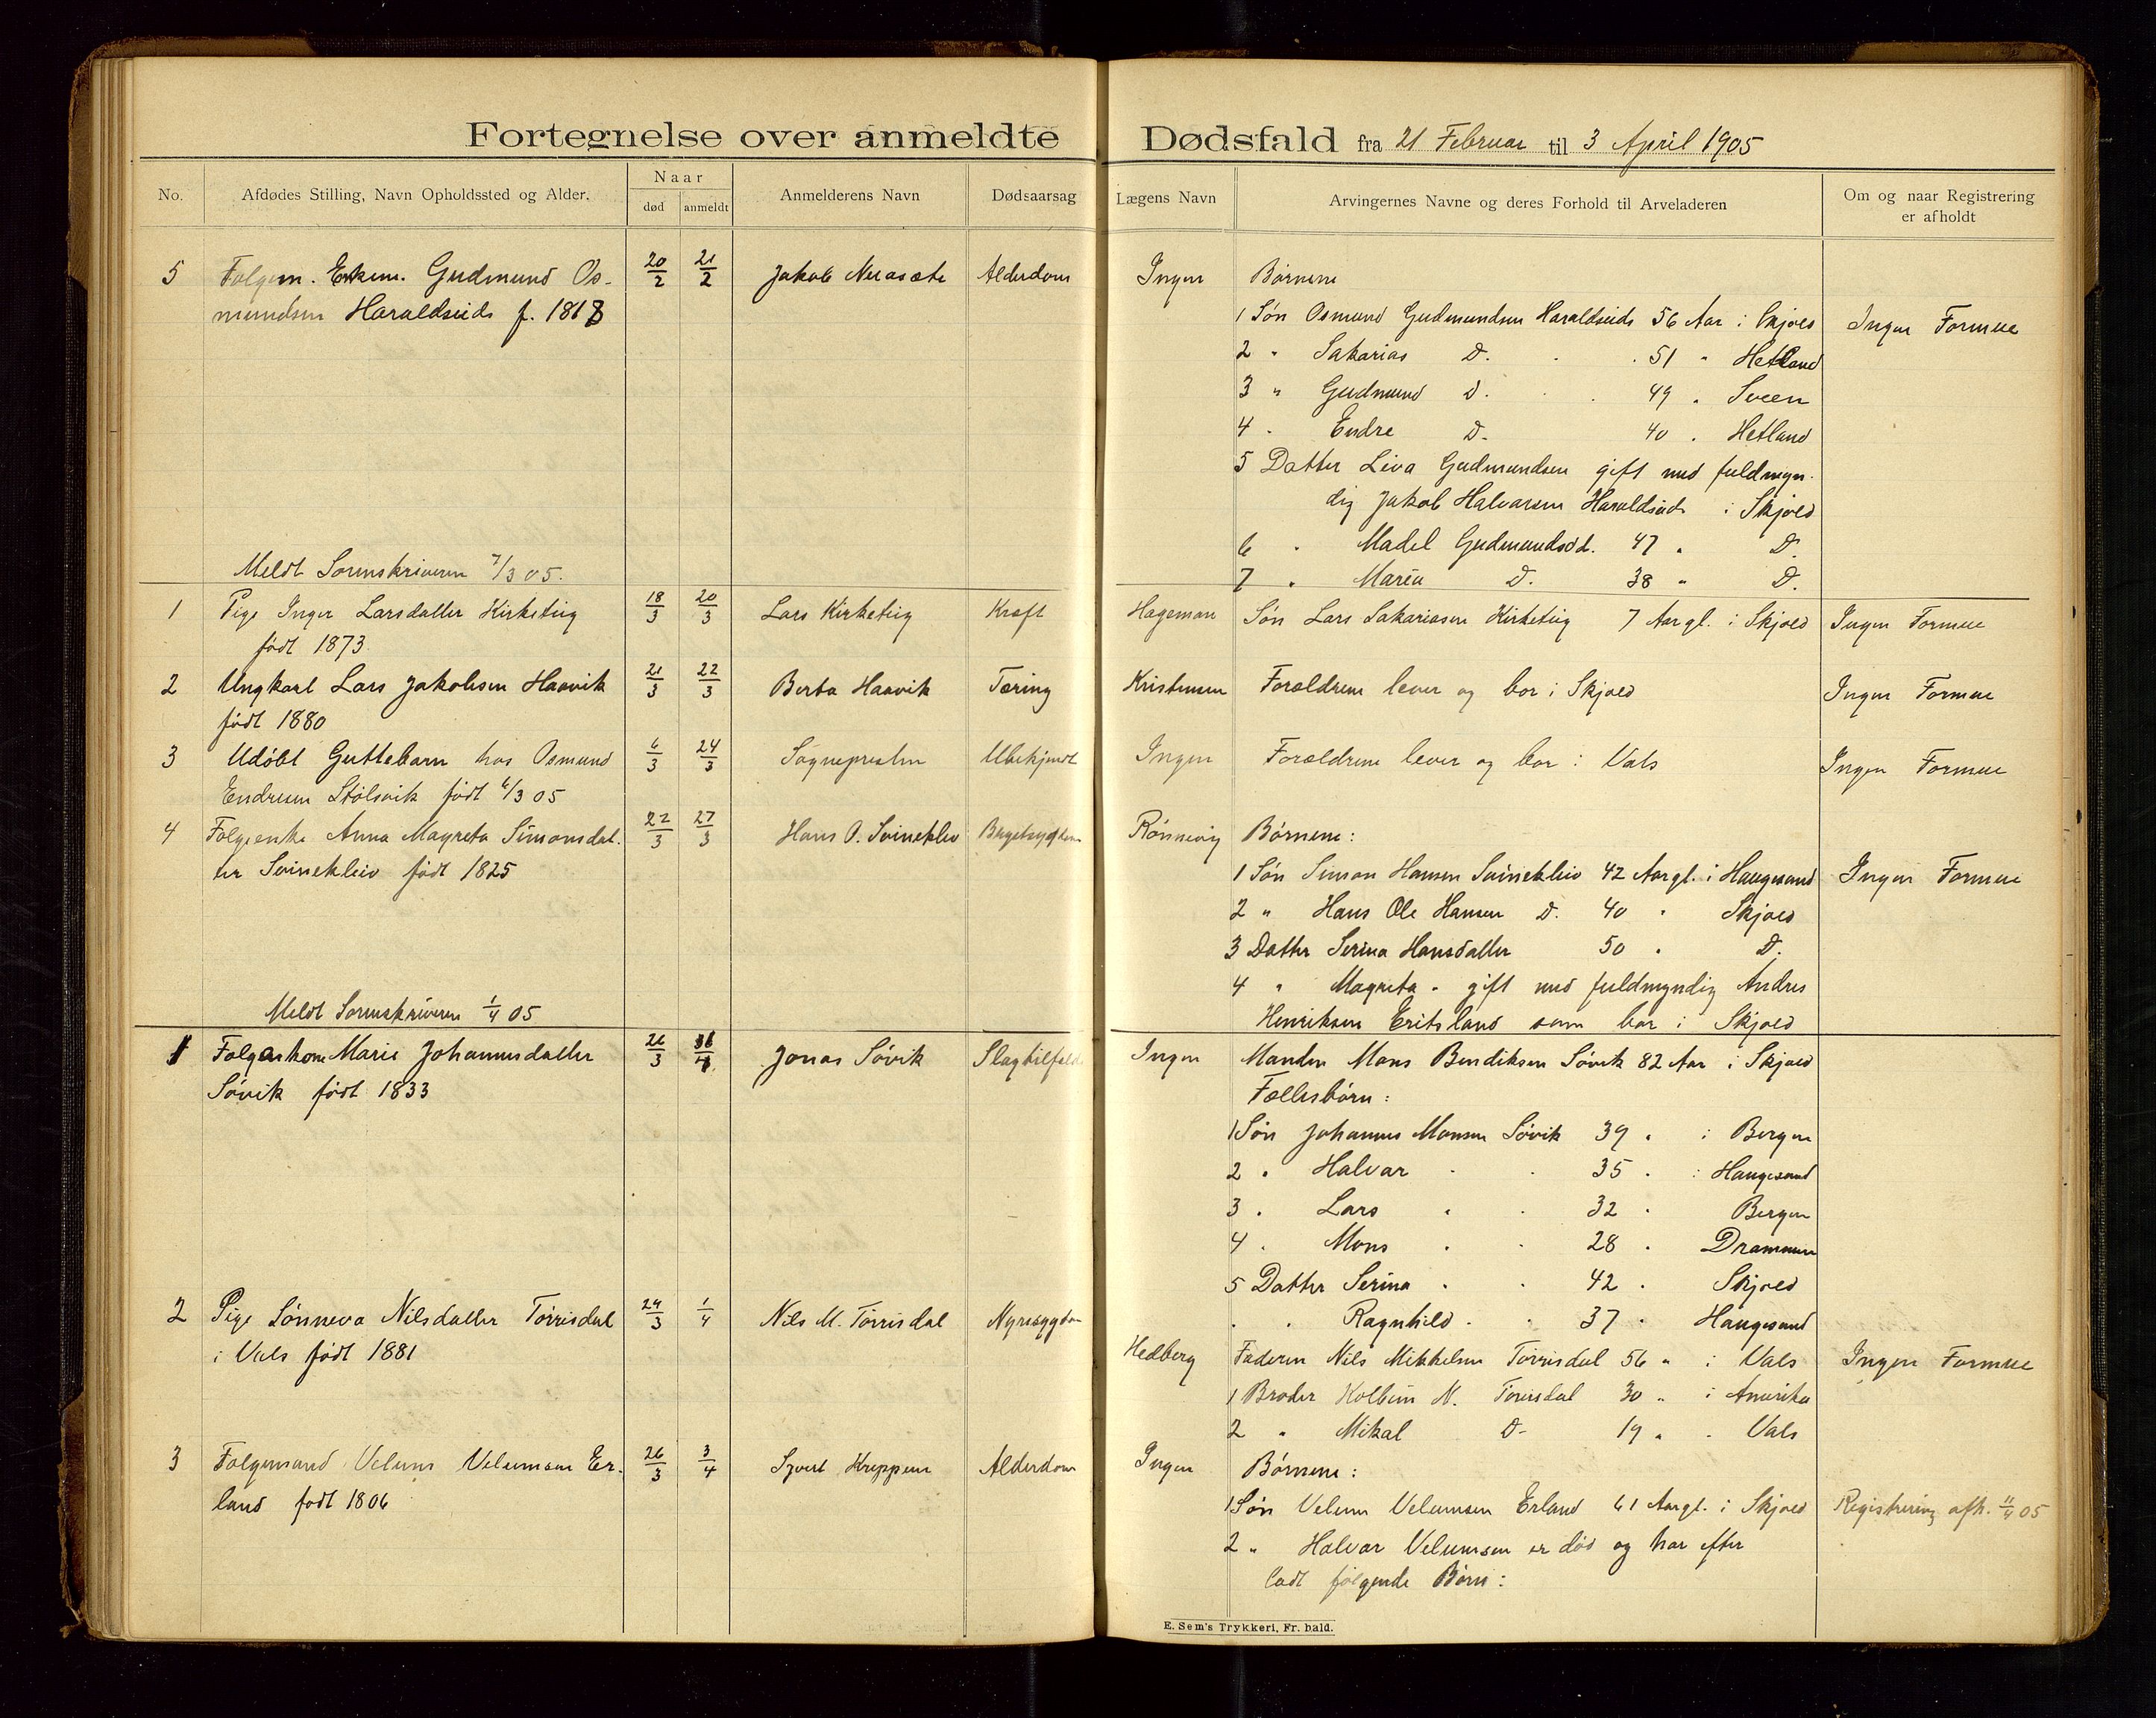 Fortegnelse over anmeldte Dødsfald fra 21 Februar til 3 April 1905
No.
Afdødes Stilling, Navn Opholdssted og Alder.
Naar
død anmeldt
Anmelderens Navn
Dødsaarsag
Lægens Navn
Arvingernes Navne og deres Forhold til Arveladeren
Om og naar Registrering
er afholdt
5 Folgem. Enkem. Gudmund Os- 20/2 21/2 Jakob Nerasæte Alderdom Ingen Børnene
mundsen Haraldseid f. 1818
1 Søn Osmund Gudmundsen Haraldseid 56 Aar i Skjold Ingen Formue
2 " Sakarias D. 51 " Hetland
3 " Gudmund D. 49 " Sveen
4 " Endre D. 40 " Hetland
5 Datter Liva Gudmundsen gift med fuldmyn-
dig Jakob Halvorsen Haraldseid i Skjold
6 " Madel Gudmundsd. 47 " D.
7 " Maria D. 38 " D.
Meldt Sorenskriveren 7/3 05.
1 Pige Inger Larsdatter Kirketeig 18/3 20/3 Lars Kirketeig Kræft Hageman Søn Lars Sakariasen Kirketeig 7 Aar gl. i Skjold Ingen Formue
født 1873
2 Ungkarl Lars Jakobsen Haavik 21/3 22/3 Berta Haavik Tæring Kristensen Forældrene lever og bor i Skjold Ingen Formue
født 1880
3 Udøbt Guttebarn hos Osmund 6/3 24/3 Sognepresten Ubekjendt Ingen Forældrene lever og bor i Vats Ingen Formue
Endresen Stølsvik født 6/3 05
4 Folgeenke Anna Magreta Simonsdat- 22/3 27/3 Hans O. Svineklev Rønnevig Børnene:
ter Svinekleiv født 1825
1 Søn Simon Hansen Svinekleiv 42 Aar gl. i Haugesund Ingen Formue
2 " Hans Ole Hansen D. 40 " Skjold
3 Datter Serina Hansdatter 50 " D.
4 " Magreta " gift med fuldmyndig Andres
Henriksen Eritsland som bor i Skjold
Meldt Sorenskriveren 1/4 05
1 Folgekone Marie Johannesdatter 26/3 Jonas Søvik Slagtilfælde Ingen Manden Mons Bendiksen Søvik 82 Aar i Skjold
Søvik født 1833
Fællesbørn:
1 Søn Johannes Monsen Søvik 39 " i Bergen
2 " Halvar " " 35 " i Haugesund
3 " Lars " " 32 " Bergen
4 " Mons " " 28 " Drammen
5 Datter Serina " " 42 " Skjold
" " Ragnhild " " 37 " Haugesund
2 Pige Sønneva Nilsdatter Tørrisdal 24/3 1/4 Nils M. Tørrisdal Nyresygdom Hedberg Faderen Nils Mikkelsen Tørrisdal 56 " i Vats Ingen Formue
i Vats født 1881
1 Broder Kolbein N. Tørrisdal 30 " i Amerika
2 " Mikal D. 19 " " Vats
3 Folgemand Velum Velumsen Er- 26/3 3/4 Sjvert Kreppene Alderdom Ingen Børnene:
land født 1806
1 Søn Velum Velumsen Erland 61 Aar gl. i Skjold Registrering afh. 11/4 05
2 " Halvar Velumsen er død og har efter
ladt følgende Børn:
E. Sem's Trykkeri, Fr. hald.